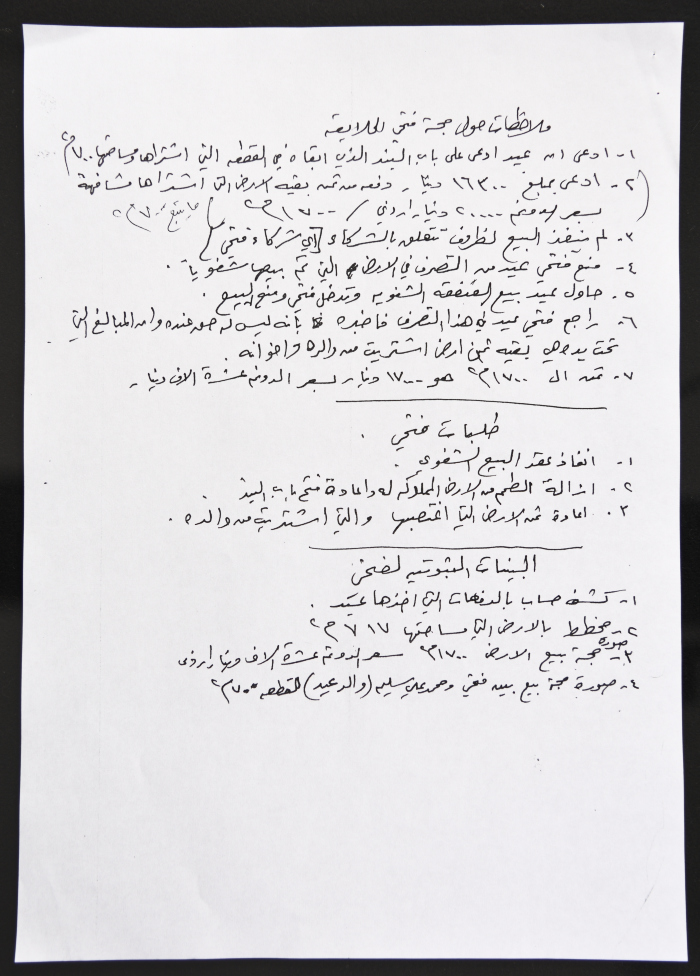 ملاحظات حول حجة فتحي الخلايقة
١- ادعى ان عيد ادعى على باب البند الذي ابقاه في القطعه التي اشتراها ومساحتها ٧٠٠م٢
٢- ادعى بمبلغ ١٦٣٠٠ دينار دفعه من ثمن بقية الارض التي اشتراها مشافهة
بسعر الدونم ٢٠٠٠٠ دينار اردني / ١٧٠٠م٢ ٧٠٠م٢
٣- لم ينفذ البيع لظروف تتعلق بالشركاء [اي شركاء فتحي]
٤- منع فتحي عيد من التصرف في الارض التي تم بيعها شفوياً.
٥- حاول عيد بيع الشفويه وتدخل فتحي ومنع البيع.
٦- راجع فتحي عيد في هذا التصرف فاخبره بأنه ليس له حق عنده وان المبالغ التي
تحت يده هي بقيه ثمن ارض اشتريت من والده واخوانه.
٧- ثمن ال ١٧٠٠م٢ هو ١٧٠٠٠ دينار بسعر الدونم عشرة الاف دينار
طلبات فتحي.
١- انفاذ عقد البيع الشفوي.
٢- ازالة الطمم من الارض المملوكه له واعادة فتح باب البند.
٣- اعادة ثمن الارض التي اغتصبها والتي اشتريت من والده.
البينات الثبوتيه لفتحي
١- كشف حساب بالدفعات التي اخذها عيد.
٢- مخطط بالارض التي مساحتها ٧١٧م٢
٣- صورة حجة بيع الارض ١٧٠٠م٢ سعر الدونم عشرة الاف دينار اردني
٤- صورة حجة بيع بين فتحي ومحمد علي سليم (والد عيد) لقطعه ٧٠٠م٢